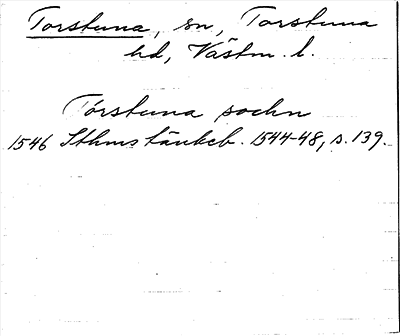 Torstuna, sn, Torstuna
hd, Västm. l.
Torstuna sochn
1546 Sthms tänkeb. 1544-48, s. 139.